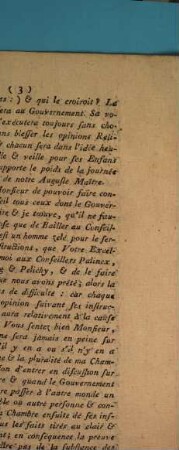 ( 3 )
es:) & qui le croiroit? La
era au Gouvernement. Sa vo-
'exécutera toujours sans cho-
ans blesser les opinions Reli-
& chacun sera dans l'idée heu-
lle & veille pour ses Enfans
upporte le poids de la journée
de notre Auguste Maître.
Monsieur de pouvoir faire con-
il tous ceux dans le Gouver-
ire & je trouve, qu'il ne fau-
que de Bailler au Conseil
est un homme zélé pour le ser-
structions, que Votre Excel-
moi aux Conseillers Pulinex,
g & Pelichy, & de le faire
ue nous avons prêté; alors la
us de difficulté: car chaque
opinion suivant ses instruc-
aura relativement à la cause
Vous sentez bien Monsieur,
me sera jamais en peine sur
'il y en a ou s'il n'y en a
e & la pluralité de ma Cham-
on d'entrer en discussion sur
re & quand le Gouvernement
re passer à l'autre monde un
de ou autre personne & con-
Chambre ensuite de ses ins-
us les faits tirés au clair &
ut; en conséquence la preuve